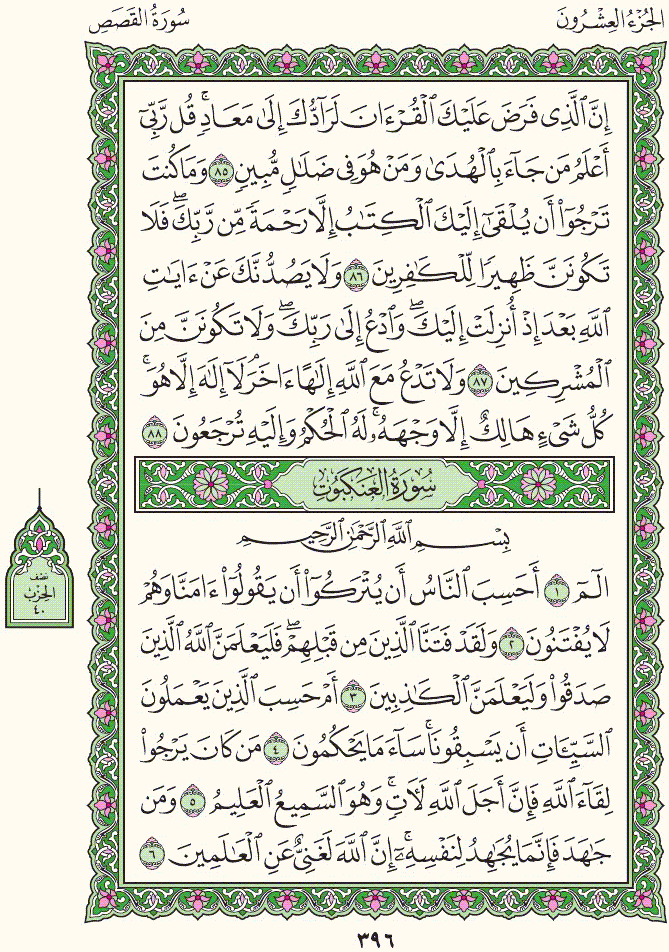 الجُزْءُ العِشْرُونَ
سُورَةُ القَصَصِ
إِنَّ ٱلَّذِى فَرَضَ عَلَيْكَ ٱلْقُرْءَانَ لَرَآدُّكَ إِلَىٰ مَعَادٍ ۚ قُل رَّبِّىٓ
أَعْلَمُ مَن جَآءَ بِٱلْهُدَىٰ وَمَنْ هُوَ فِى ضَلَٰلٍ مُّبِينٍ ٨٥ وَمَا كُنتَ
تَرْجُوٓا۟ أَن يُلْقَىٰٓ إِلَيْكَ ٱلْكِتَٰبُ إِلَّا رَحْمَةً مِّن رَّبِّكَ ۖ فَلَا
تَكُونَنَّ ظَهِيرًا لِّلْكَٰفِرِينَ ٨٦ وَلَا يَصُدُّنَّكَ عَنْ ءَايَٰتِ
ٱللَّهِ بَعْدَ إِذْ أُنزِلَتْ إِلَيْكَ ۖ وَٱدْعُ إِلَىٰ رَبِّكَ ۖ وَلَا تَكُونَنَّ مِنَ
ٱلْمُشْرِكِينَ ٨٧ وَلَا تَدْعُ مَعَ ٱللَّهِ إِلَٰهًا ءَاخَرَ ۘ لَآ إِلَٰهَ إِلَّا هُوَ ۚ
كُلُّ شَىْءٍ هَالِكٌ إِلَّا وَجْهَهُۥ ۚ لَهُ ٱلْحُكْمُ وَإِلَيْهِ تُرْجَعُونَ ٨٨
سُورَةُ العَنكَبُوتِ
بِسْمِ ٱللَّهِ ٱلرَّحْمَٰنِ ٱلرَّحِيمِ
الٓمٓ ١ أَحَسِبَ ٱلنَّاسُ أَن يُتْرَكُوٓا۟ أَن يَقُولُوٓا۟ ءَامَنَّا وَهُمْ
لَا يُفْتَنُونَ ٢ وَلَقَدْ فَتَنَّا ٱلَّذِينَ مِن قَبْلِهِمْ ۖ فَلَيَعْلَمَنَّ ٱللَّهُ ٱلَّذِينَ
صَدَقُوا۟ وَلَيَعْلَمَنَّ ٱلْكَٰذِبِينَ ٣ أَمْ حَسِبَ ٱلَّذِينَ يَعْمَلُونَ
ٱلسَّيِّـَٔاتِ أَن يَسْبِقُونَا ۚ سَآءَ مَا يَحْكُمُونَ ٤ مَن كَانَ يَرْجُوا۟
لِقَآءَ ٱللَّهِ فَإِنَّ أَجَلَ ٱللَّهِ لَـَٔاتٍ ۚ وَهُوَ ٱلسَّمِيعُ ٱلْعَلِيمُ ٥ وَمَن
جَٰهَدَ فَإِنَّمَا يُجَٰهِدُ لِنَفْسِهِۦٓ ۚ إِنَّ ٱللَّهَ لَغَنِىٌّ عَنِ ٱلْعَٰلَمِينَ ٦
نصف
الحزب
٤٠
٣٩٦